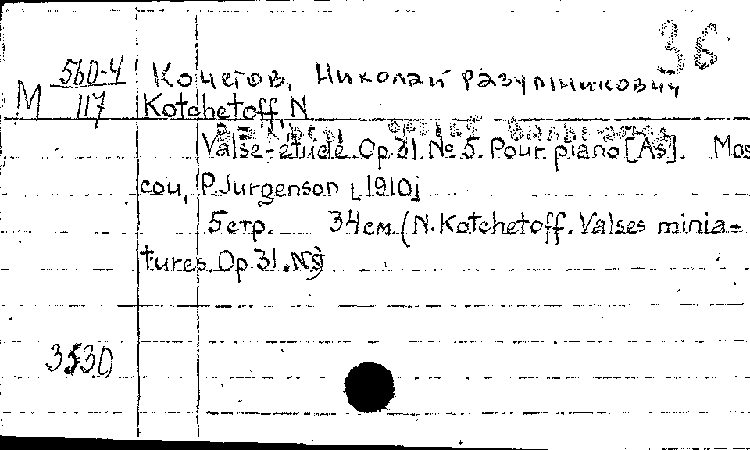 36
М 560-4/117
Кочетов, Николай Разумникович
Kotchetoff, N
Valse-etude Op 31. № 5. Pour piano [As]. Mos
cou, P. Jurgenson [1910]
5 стр. 34 см. (N. Kotchetoff. Valses minia-
tures Op 31. №5)
3530